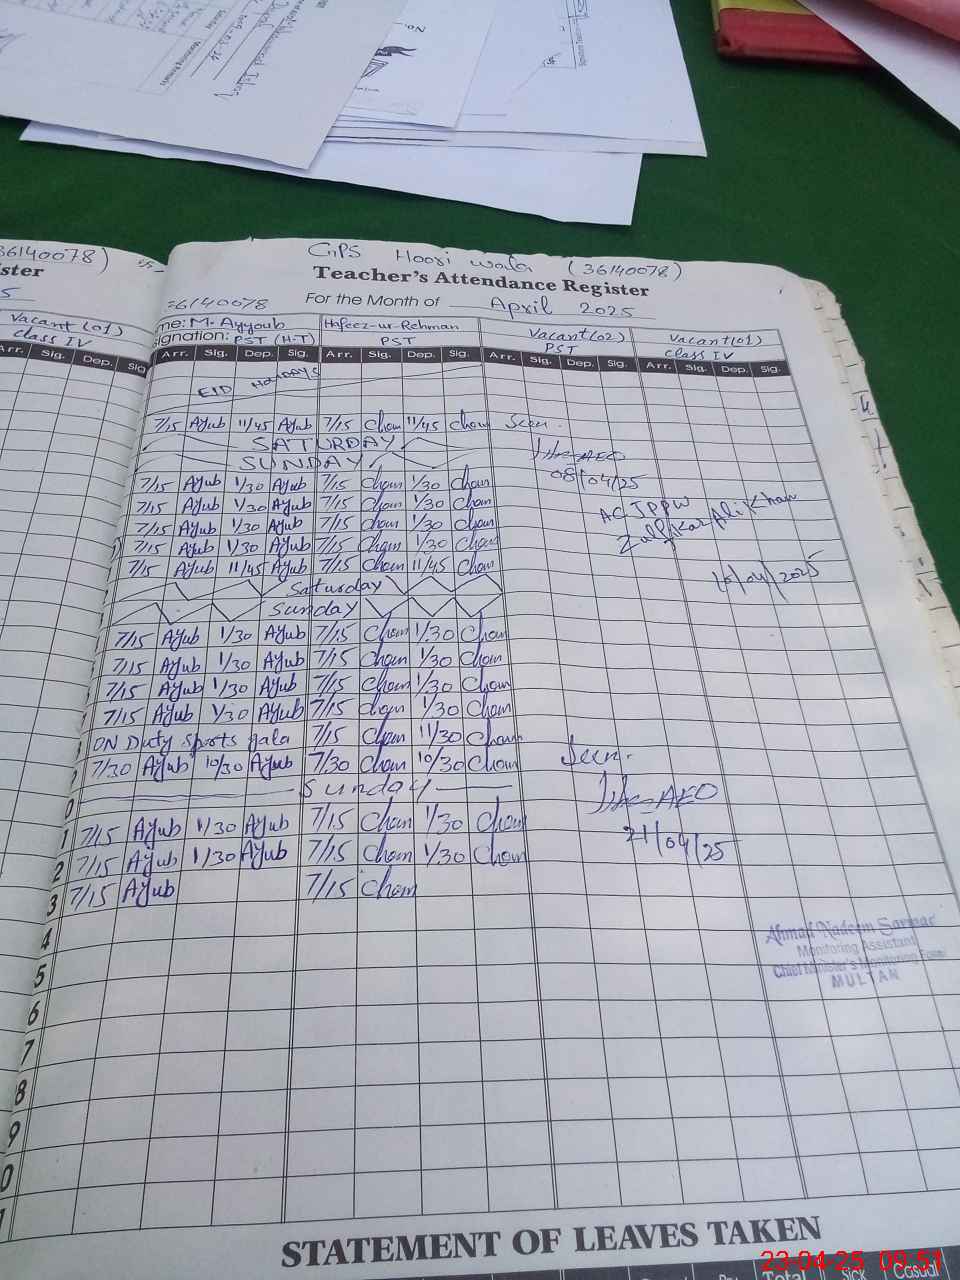 36140078)
ster
Vacant (01)
class IV
Arr. Sig. Dep. Sig
GPS Hoori wala (36140078)
Teacher's Attendance Register
36140078 For the Month of April 2025
me: M. Ayyoub Hafeez-ur-Rehman Vacant(02) Vacant(01)
signation: PST (H-T) PST PST class IV
Arr. Sig. Dep. Sig. Arr. Sig. Dep. Sig. Arr. Sig. Dep. Sig. Arr. Sig. Dep. Sig.
EID HOLIDAYS
7/15 Ayub 11/45 Ayub 7/15 Cham 11/45 Cham Seen.
SATURDAY
SUNDAY AEO
7/15 Ayub 1/30 Ayub 7/15 Cham 1/30 Cham 08/04/25
7/15 Ayub 1/30 Ayub 7/15 Cham 1/30 Cham
7/15 Ayub 1/30 Ayub 7/15 Cham 1/30 Cham Zulfikar Ali Khan
7/15 Ayub 1/30 Ayub 7/15 Cham 1/30 Cham
7/15 Ayub 11/45 Ayub 7/15 Cham 11/45 Cham 16/04/2025
Saturday
Sunday
7/15 Ayub 1/30 Ayub 7/15 Cham 1/30 Cham
7/15 Ayub 1/30 Ayub 7/15 Cham 1/30 Cham
7/15 Ayub 1/30 Ayub 7/15 Cham 1/30 Cham
7/15 Ayub 1/30 Ayub 7/15 Cham 1/30 Cham
ON Duty sports gala 7/15 Cham 11/30 Cham
7/30 Ayub 10/30 Ayub 7/30 Cham 10/30 Cham Seen.
0 Sunday AEO
1 7/15 Ayub 1/30 Ayub 7/15 Cham 1/30 Cham 21/04/25
2 7/15 Ayub 1/30 Ayub 7/15 Cham 1/30 Cham
3 7/15 Ayub 7/15 Cham
4
5
6
7
8
9
0
1
Ahmad Nadeem Sarwar
Monitoring Assistant
Chief Minister's Monitoring Force
MULTAN
STATEMENT OF LEAVES TAKEN
Total Sick Casual
23-04-25 09:51